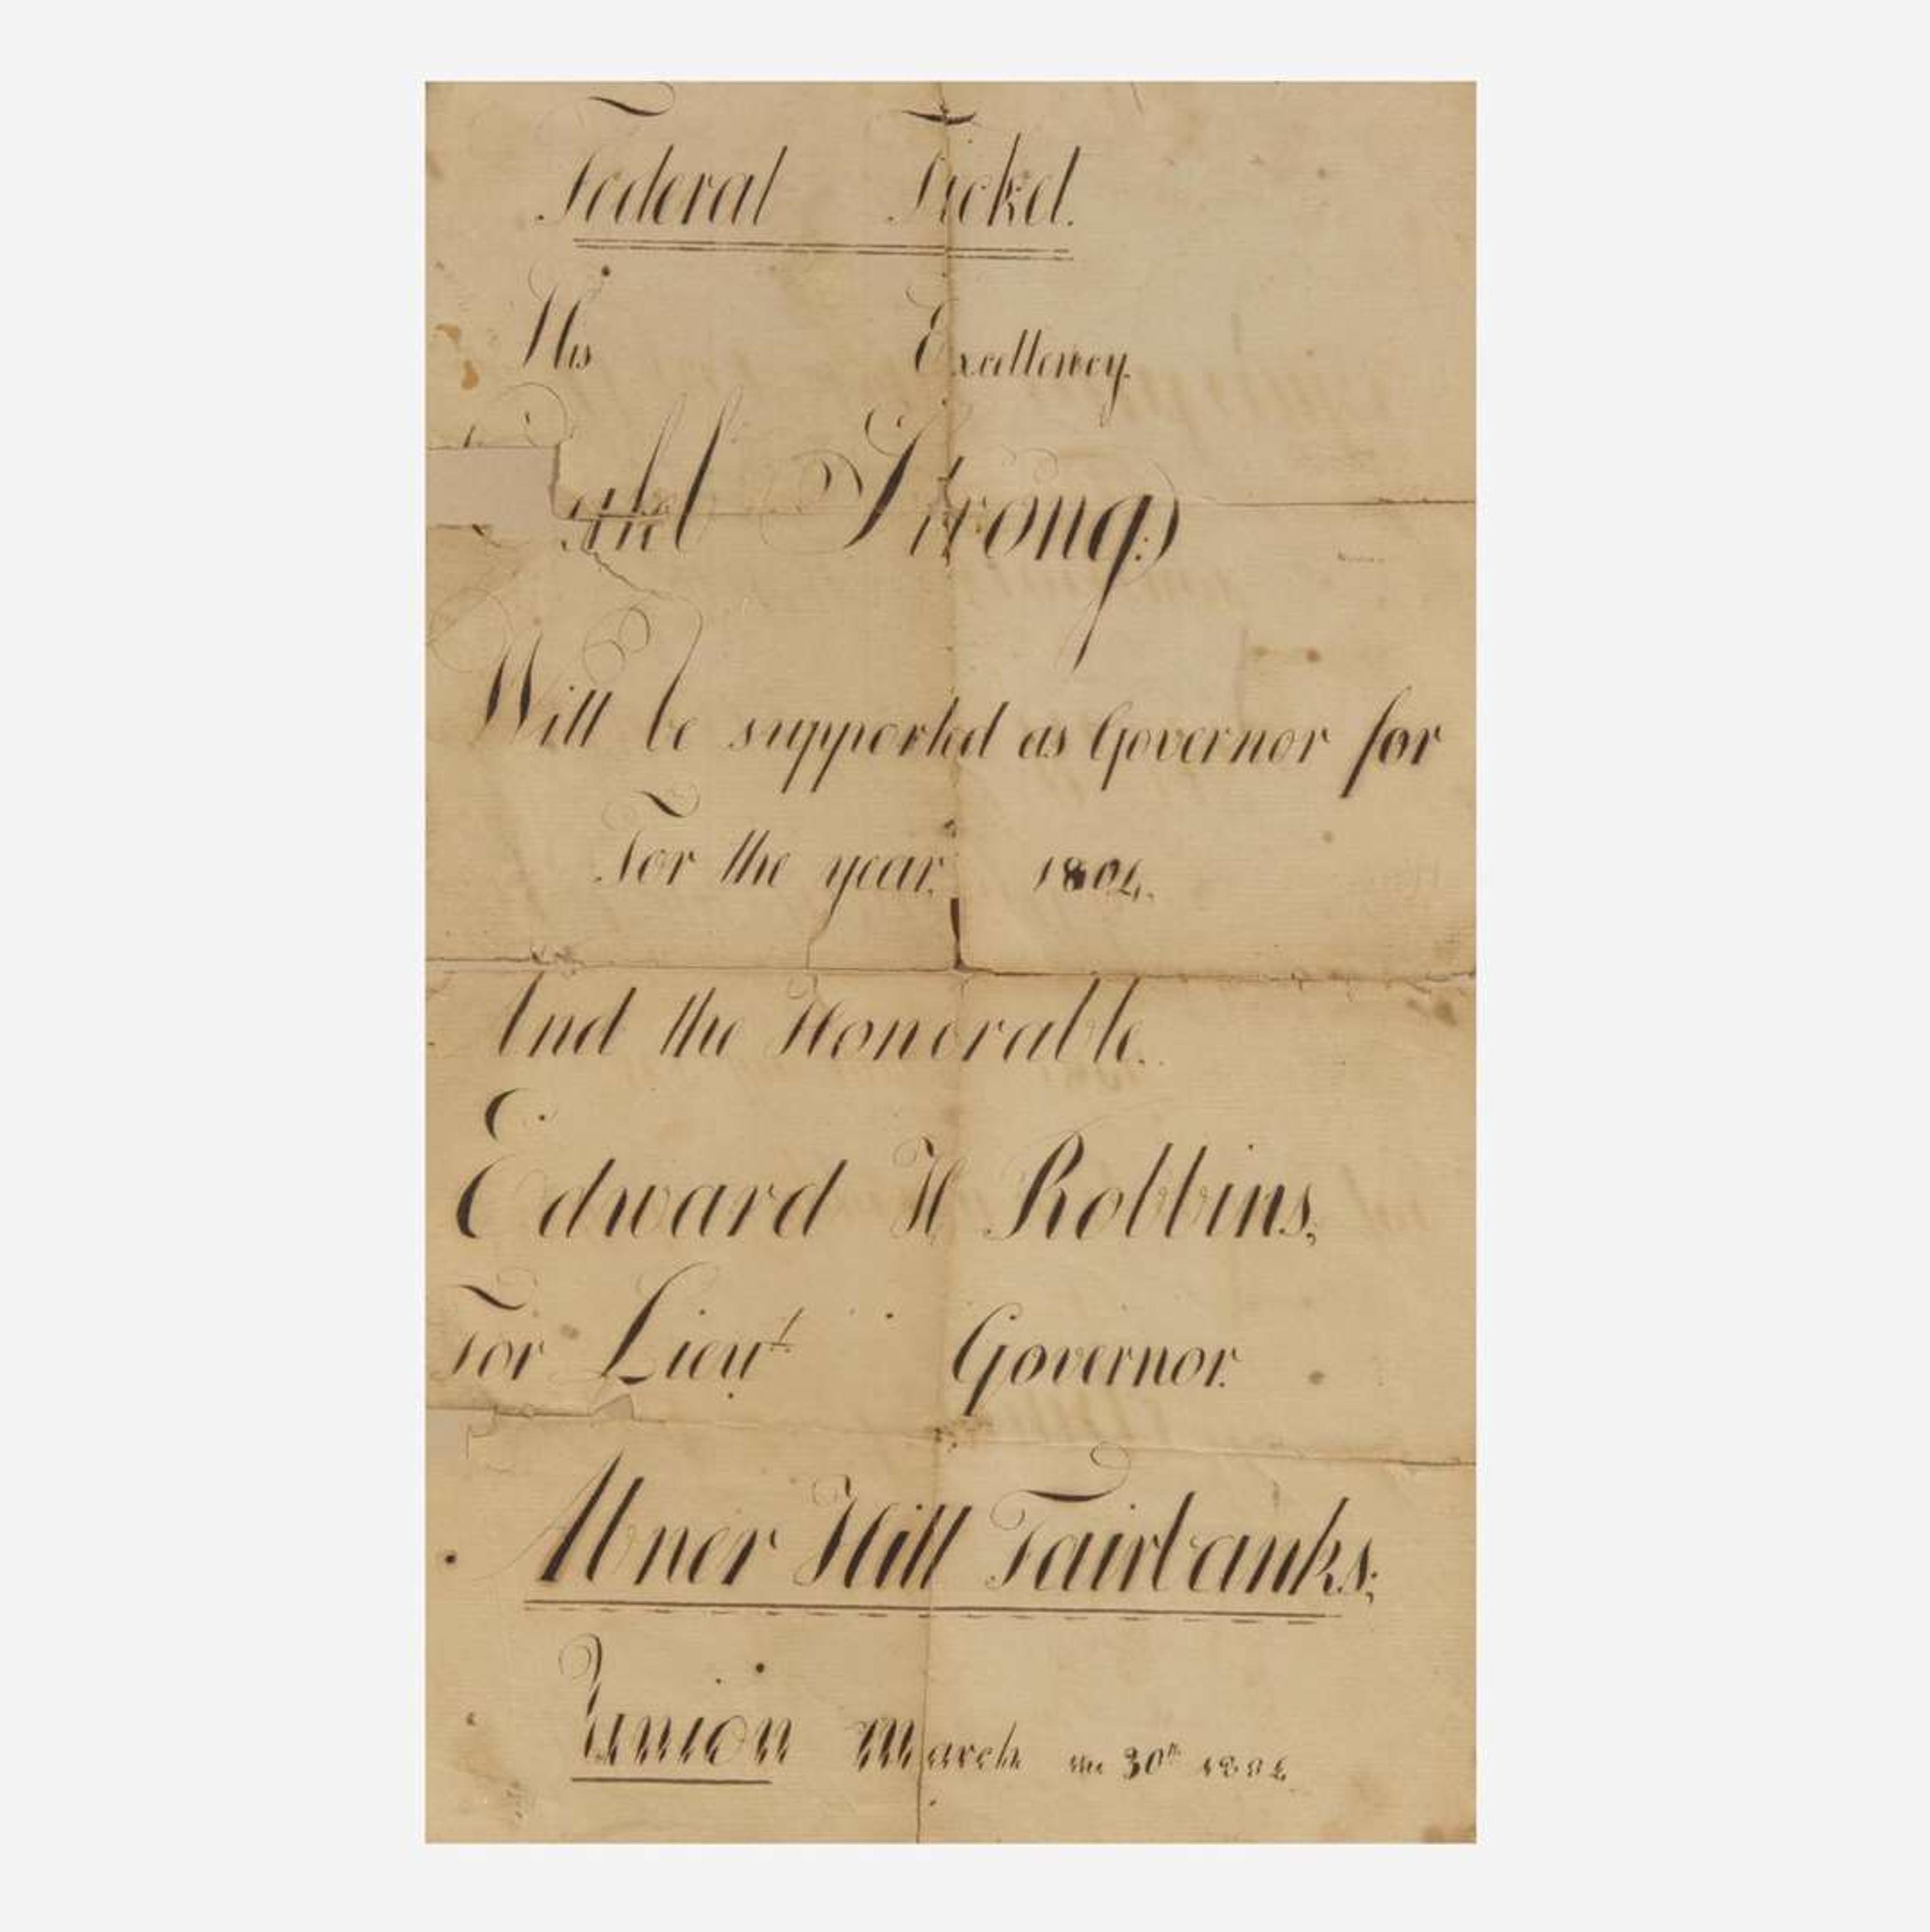 Federal Ticket.
His Excellency.
Strong:)
Will be supported as Governor for
For the year. 1804.
And the Honorable.
Edward H Robbins,
For Lieut. Governor.
Abner Hill Fairbanks;
Union March the 30th 1804